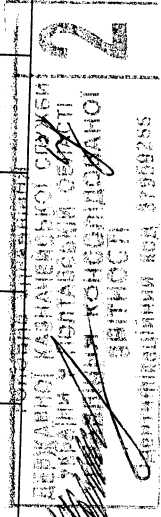 ДЕРЖАВНОЇ КАЗНАЧЕЙСЬКОЇ СЛУЖБИ
УКРАЇНИ У ПОЛТАВСЬКІЙ ОБЛАСТІ
КОНСОЛІДОВАНОЇ
ЗВІТНОСТІ
Ідентифікаційний код 37959255
2